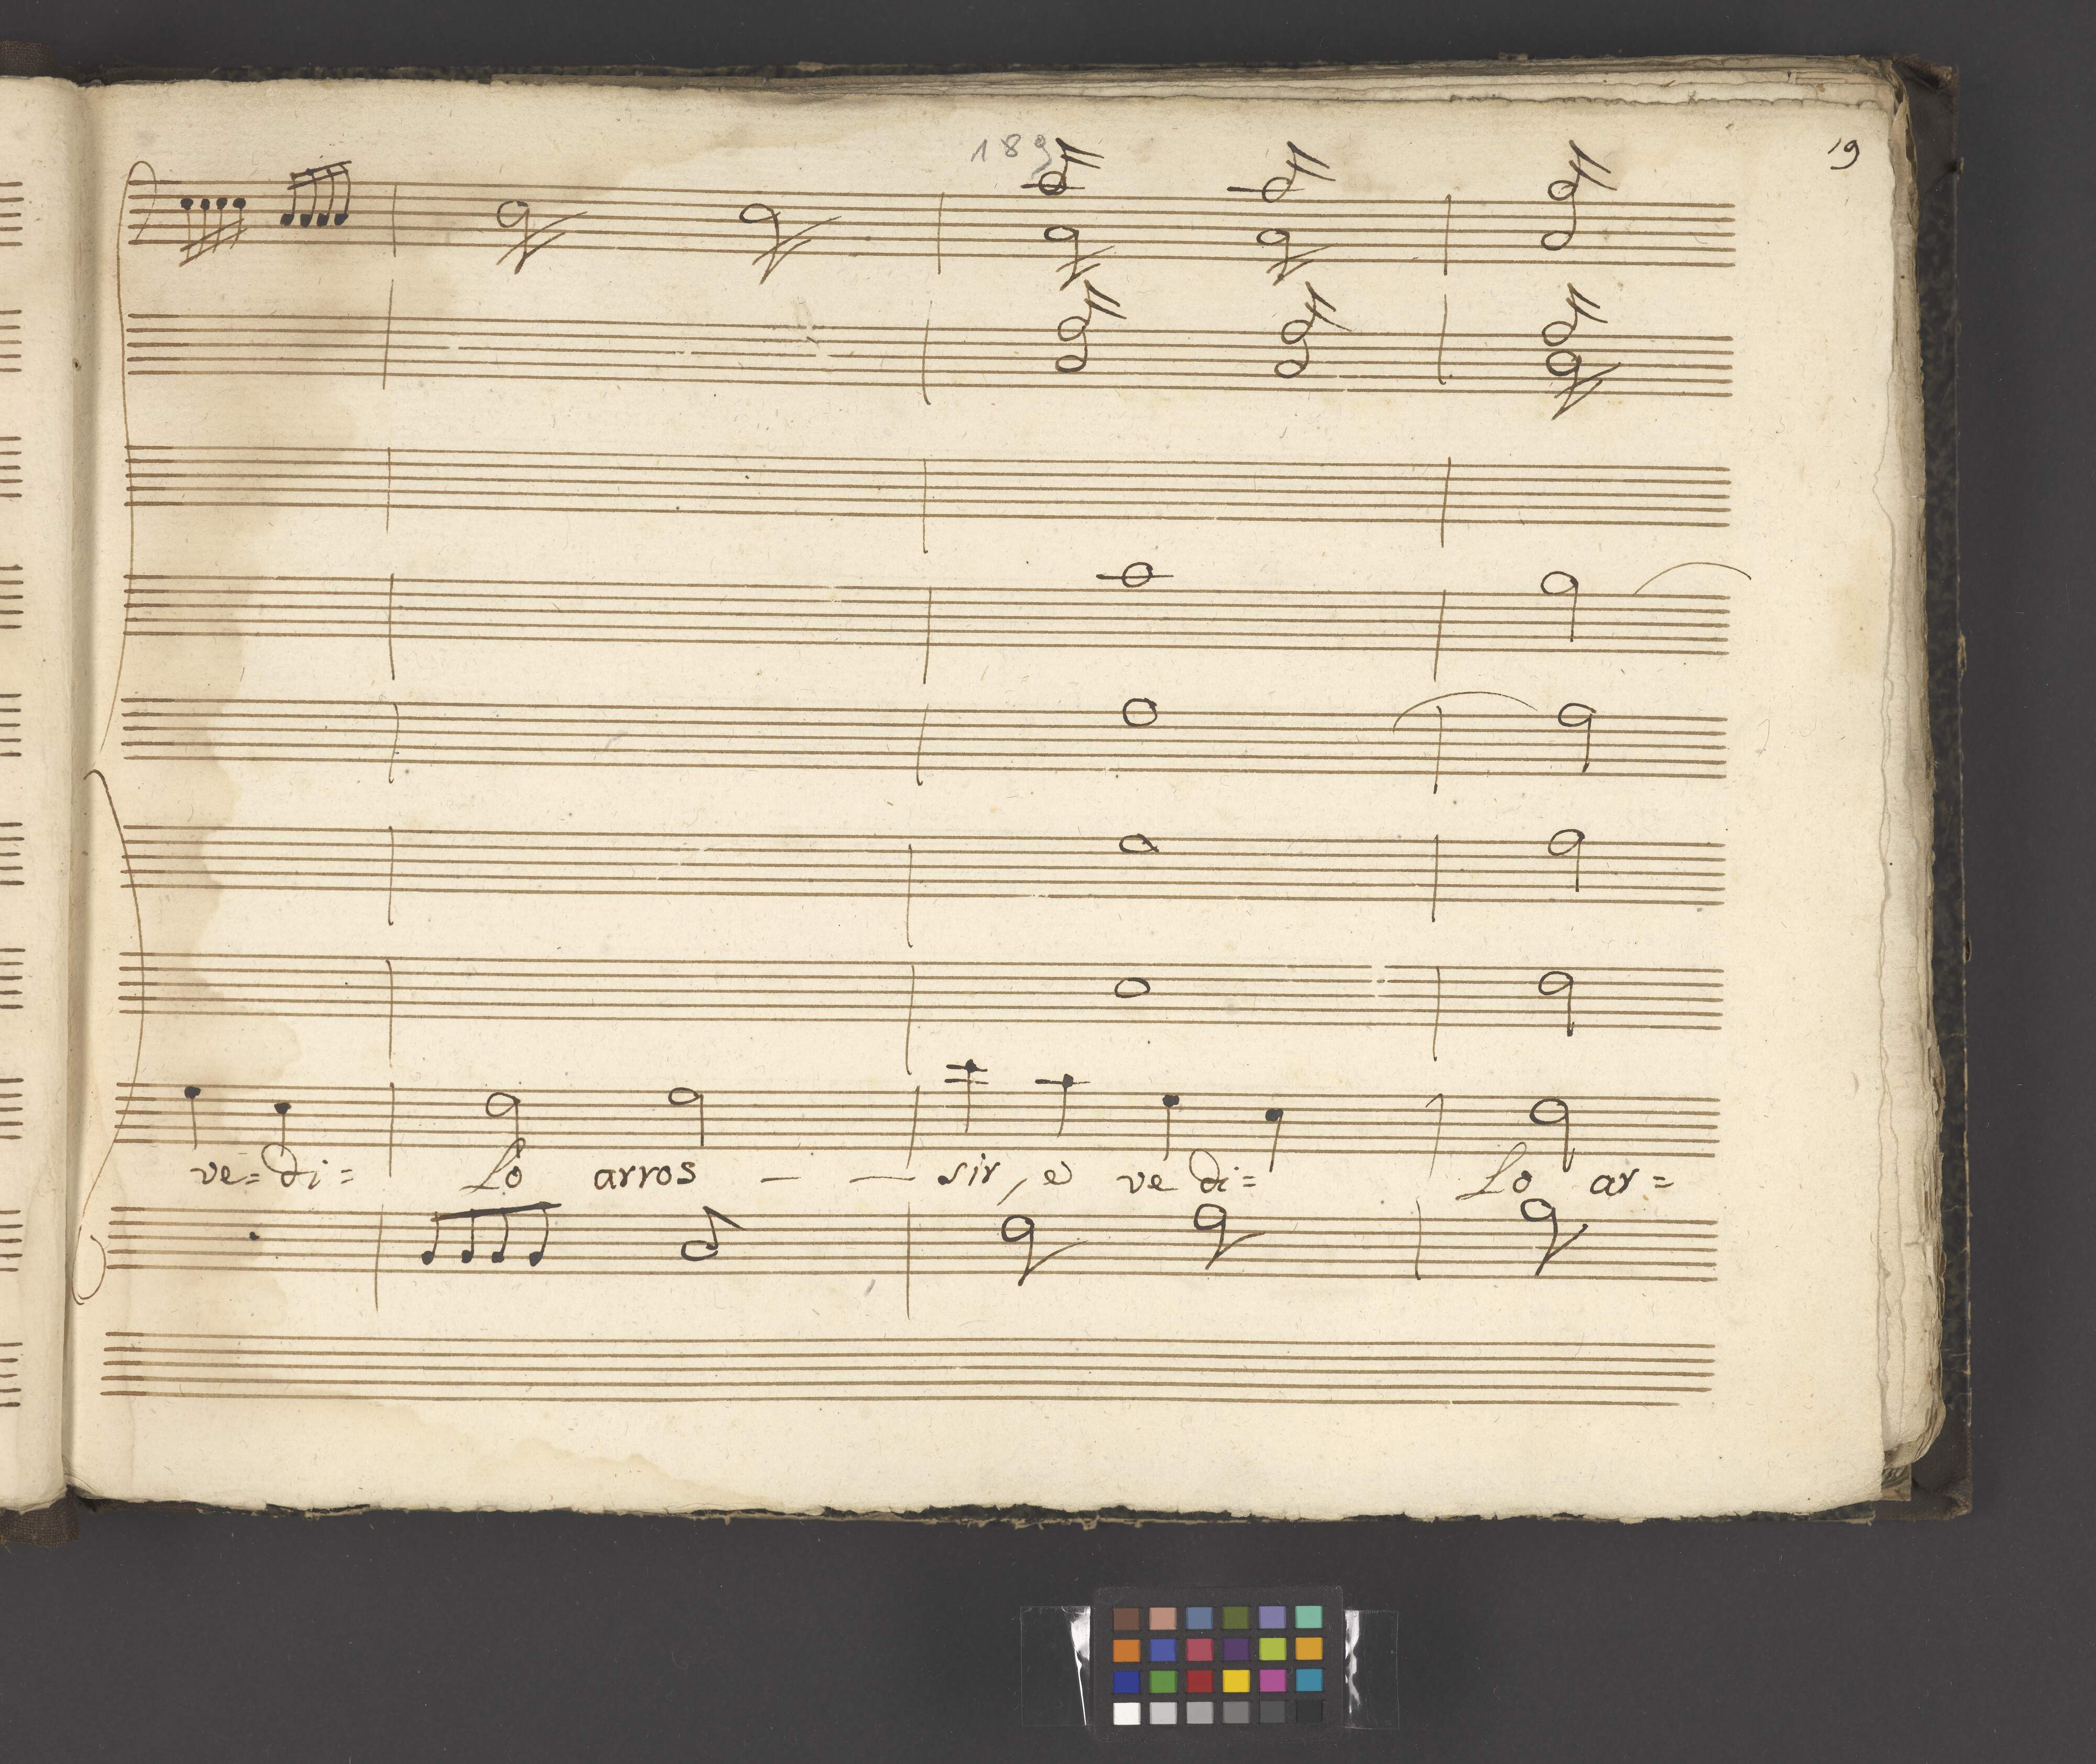 189
19
ve= di= Lo arros — — sir, e ve di= Lo ar=